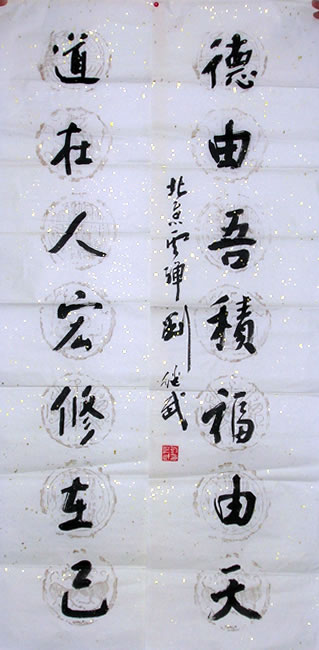 德由吾積福由天
道在人宏修在己
北京